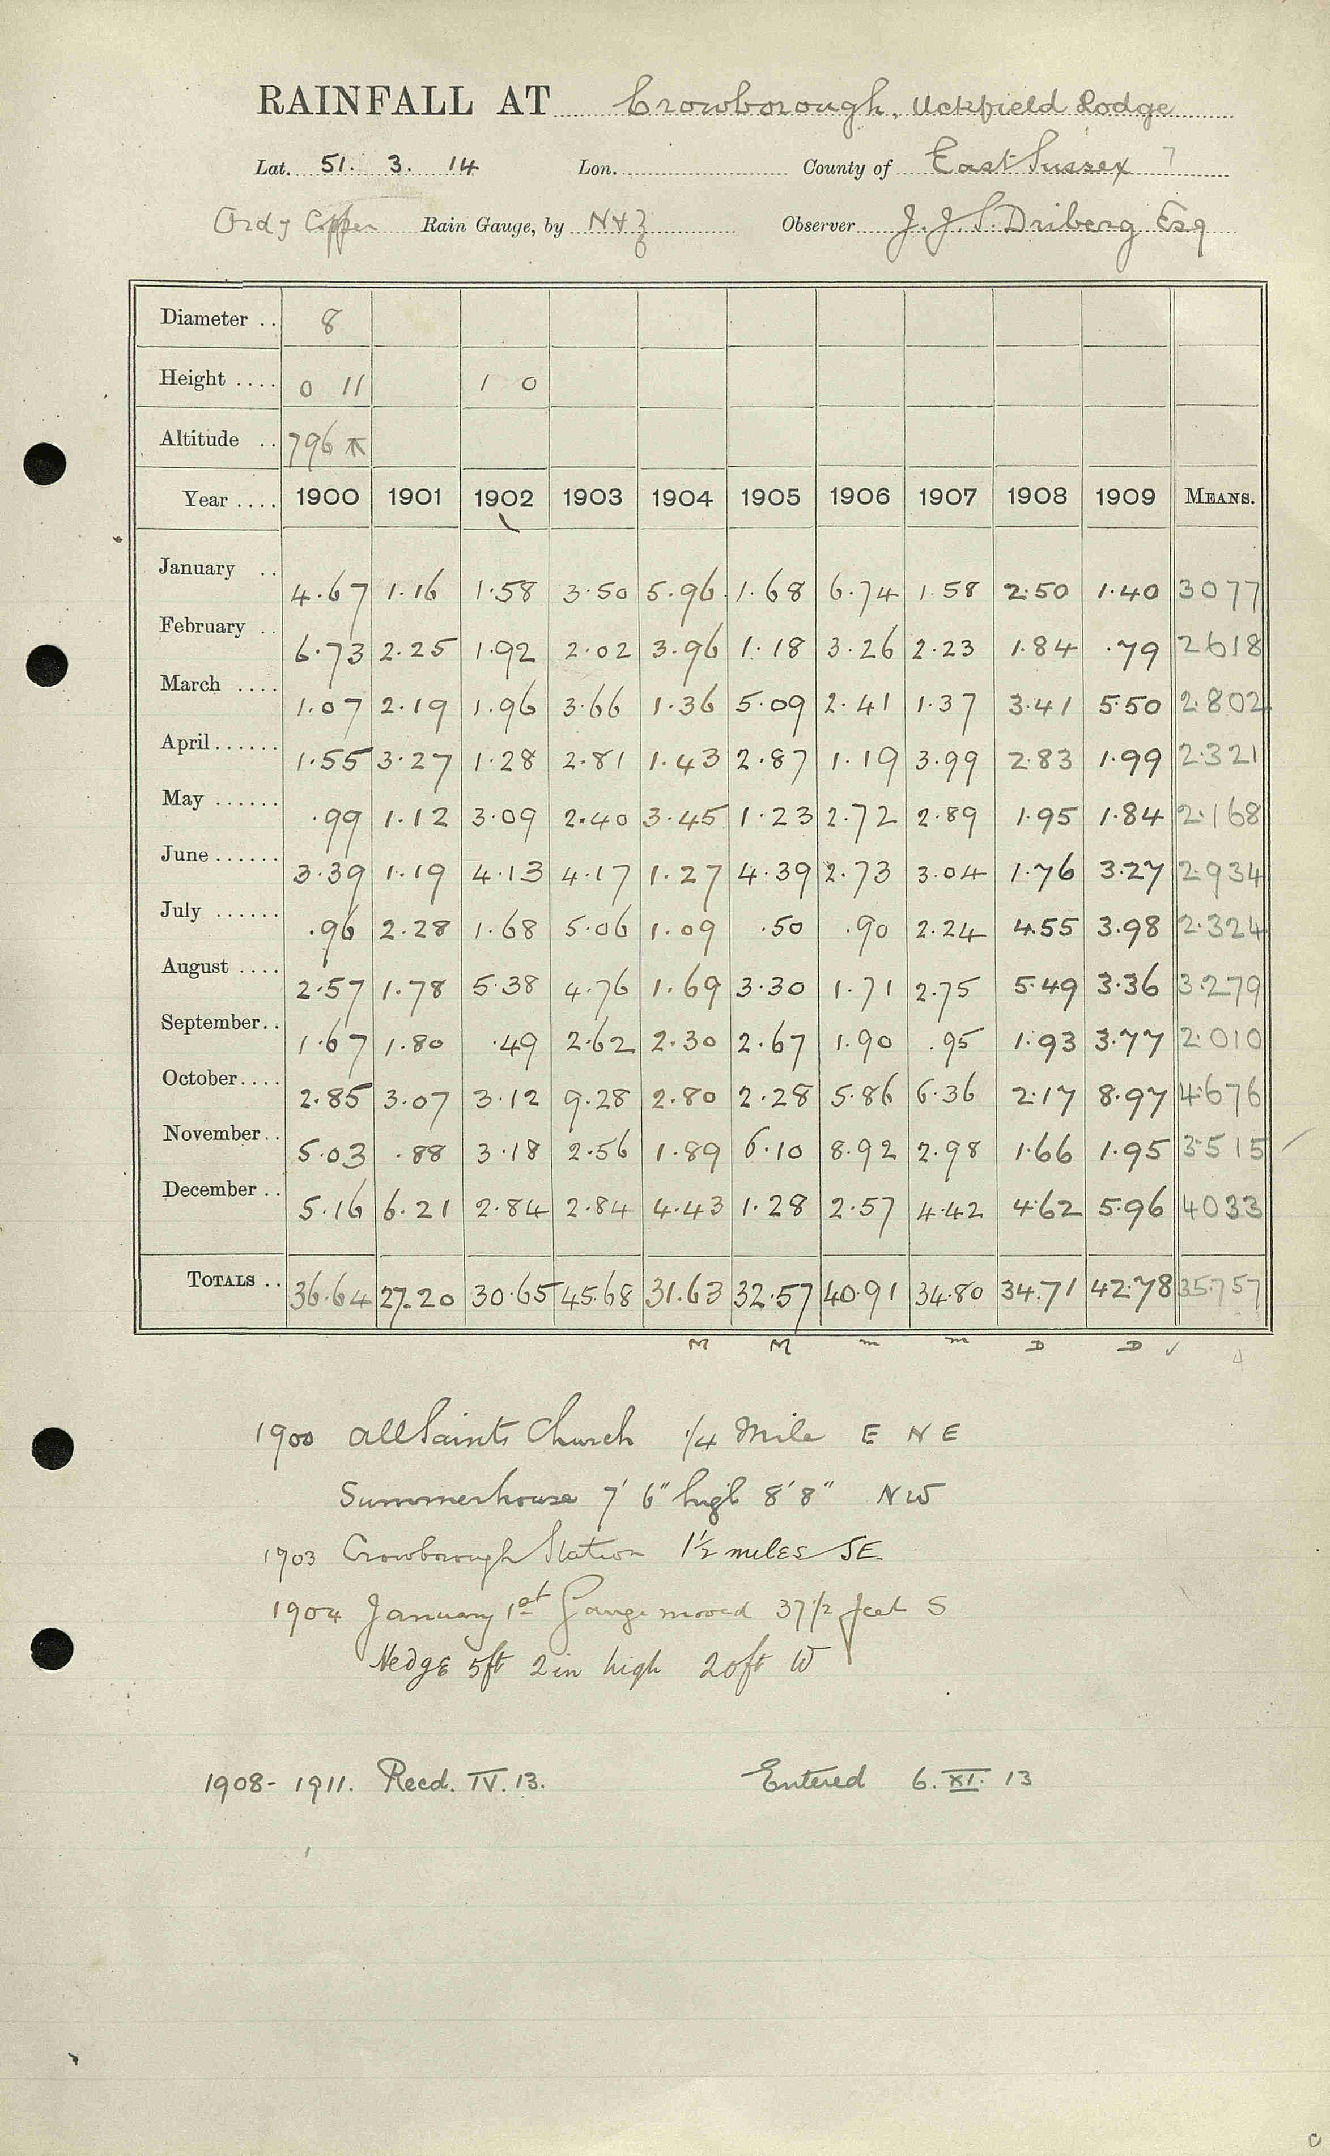 RAINFALL AT Crowborough, Uckfield Lodge
Lat. 51. 3. 14 Lon. County of East Sussex 7
Ordy Copper Rain Gauge, by N & Z Observer J. J. S. Driberg Esq
Diameter .. 8
Height .... 0 11 1 0
Altitude .. 796
Year .... 1900 1901 1902 1903 1904 1905 1906 1907 1908 1909 MEANS.
January .. 4.67 1.16 1.58 3.50 5.96 1.68 6.74 1.58 2.50 1.40 3077
February .. 6.73 2.25 1.92 2.02 3.96 1.18 3.26 2.23 1.84 .79 2618
March .... 1.07 2.19 1.96 3.66 1.36 5.09 2.41 1.37 3.41 5.50 2.802
April...... 1.55 3.27 1.28 2.81 1.43 2.87 1.19 3.99 2.83 1.99 2.321
May ...... .99 1.12 3.09 2.40 3.45 1.23 2.72 2.89 1.95 1.84 2.168
June...... 3.39 1.19 4.13 4.17 1.27 4.39 2.73 3.04 1.76 3.27 2.934
July ...... .96 2.28 1.68 5.06 1.09 .50 .90 2.24 4.55 3.98 2.324
August .... 2.57 1.78 5.38 4.76 1.69 3.30 1.71 2.75 5.49 3.36 3.279
September.. 1.67 1.80 .49 2.62 2.30 2.67 1.90 .95 1.93 3.77 2.010
October.... 2.85 3.07 3.12 9.28 2.80 2.28 5.86 6.36 2.17 8.97 4.676
November.. 5.03 .88 3.18 2.56 1.89 6.10 8.92 2.98 1.66 1.95 3.515
December .. 5.16 6.21 2.84 2.84 4.43 1.28 2.57 4.42 4.62 5.96 4033
TOTALS .. 36.64 27.20 30.65 45.68 31.63 32.57 40.91 34.80 34.71 42.78 35.757
M M m m D D ✓ 4
1900 All Saints Church 1/4 Mile E N E
Summerhouse 7' 6" high 8' 8" NW
1903 Crowborough Station 1½ miles SE
1904 January 1st Gauge moved 37 1/2 feet S
Hedge 5ft 2in high 20ft W
1908 - 1911. Recd. IV. 13. Entered 6. XI. 13